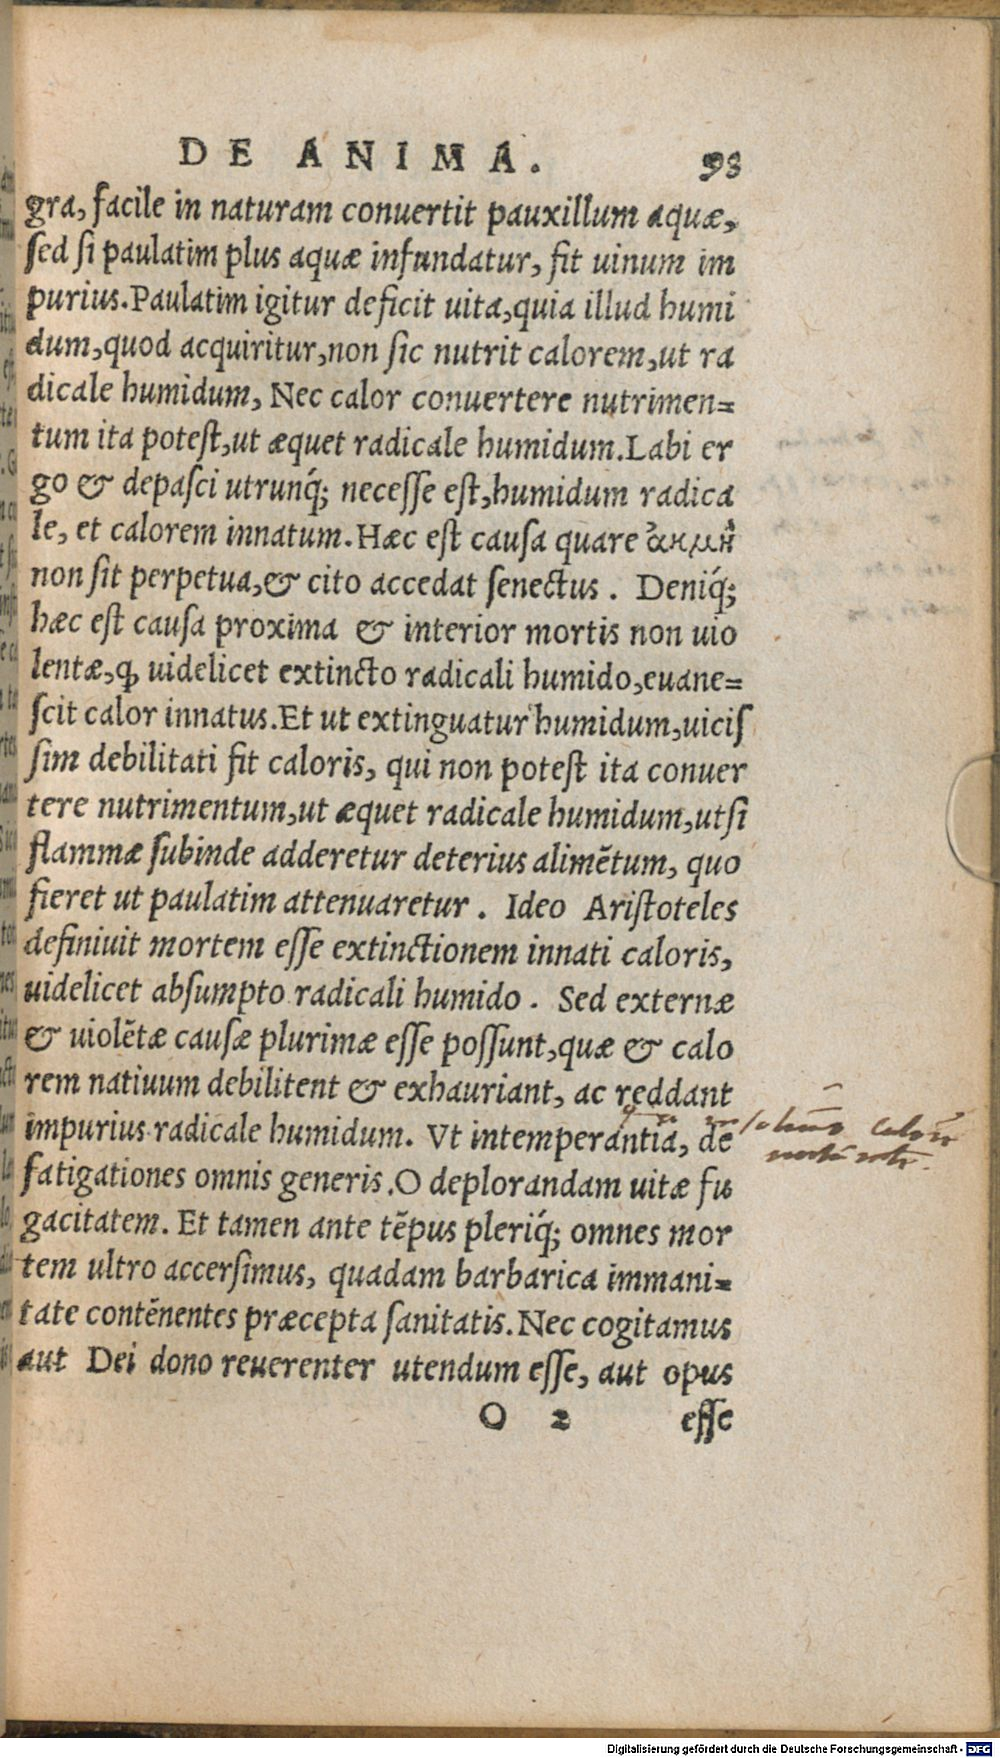 DE ANIMA. 98
gra, facile in naturam conuertit pauxillum aquæ,
ſed ſi paulatim plus aquæ infundatur, fit uinum im
purius. Paulatim igitur deficit uita, quia illud humi
dum, quod acquiritur, non ſic nutrit calorem, ut ra
dicale humidum, Nec calor conuertere nutrimen=
tum ita poteſt, ut æquet radicale humidum. Labi er
go & depaſci utrunq́; neceſſe eſt, humidum radica
le, et calorem innatum. Hæc eſt cauſa quare ἀκμὴ
non ſit perpetua, & cito accedat ſenectus. Deniq́;
hæc eſt cauſa proxima & interior mortis non uio
lentæ, ꝙ uidelicet extincto radicali humido, euane=
ſcit calor innatus. Et ut extinguatur humidum, uiciſ
ſim debilitati fit caloris, qui non poteſt ita conuer
tere nutrimentum, ut æquet radicale humidum, utſi
flammæ ſubinde adderetur deterius alimẽtum, quo
fieret ut paulatim attenuaretur. Ideo Ariſtoteles
definiuit mortem eſſe extinctionem innati caloris,
uidelicet abſumpto radicali humido. Sed externæ
& uiolẽtæ cauſæ plurimæ eſſe poſſunt, quæ & calo
rem natiuum debilitent & exhauriant, ac reddant
impurius radicale humidum. Vt intemperantia, de
fatigationes omnis generis. O deplorandam uitæ fu
gacitatem. Et tamen ante tẽpus pleriq́; omnes mor
tem ultro accerſimus, quadam barbarica immani=
tate contẽnentes præcepta ſanitatis. Nec cogitamus
aut Dei dono reuerenter utendum eſſe, aut opus
O 2 eſſe
Digitalisierung gefördert durch die Deutsche Forschungsgemeinschaft - DFG